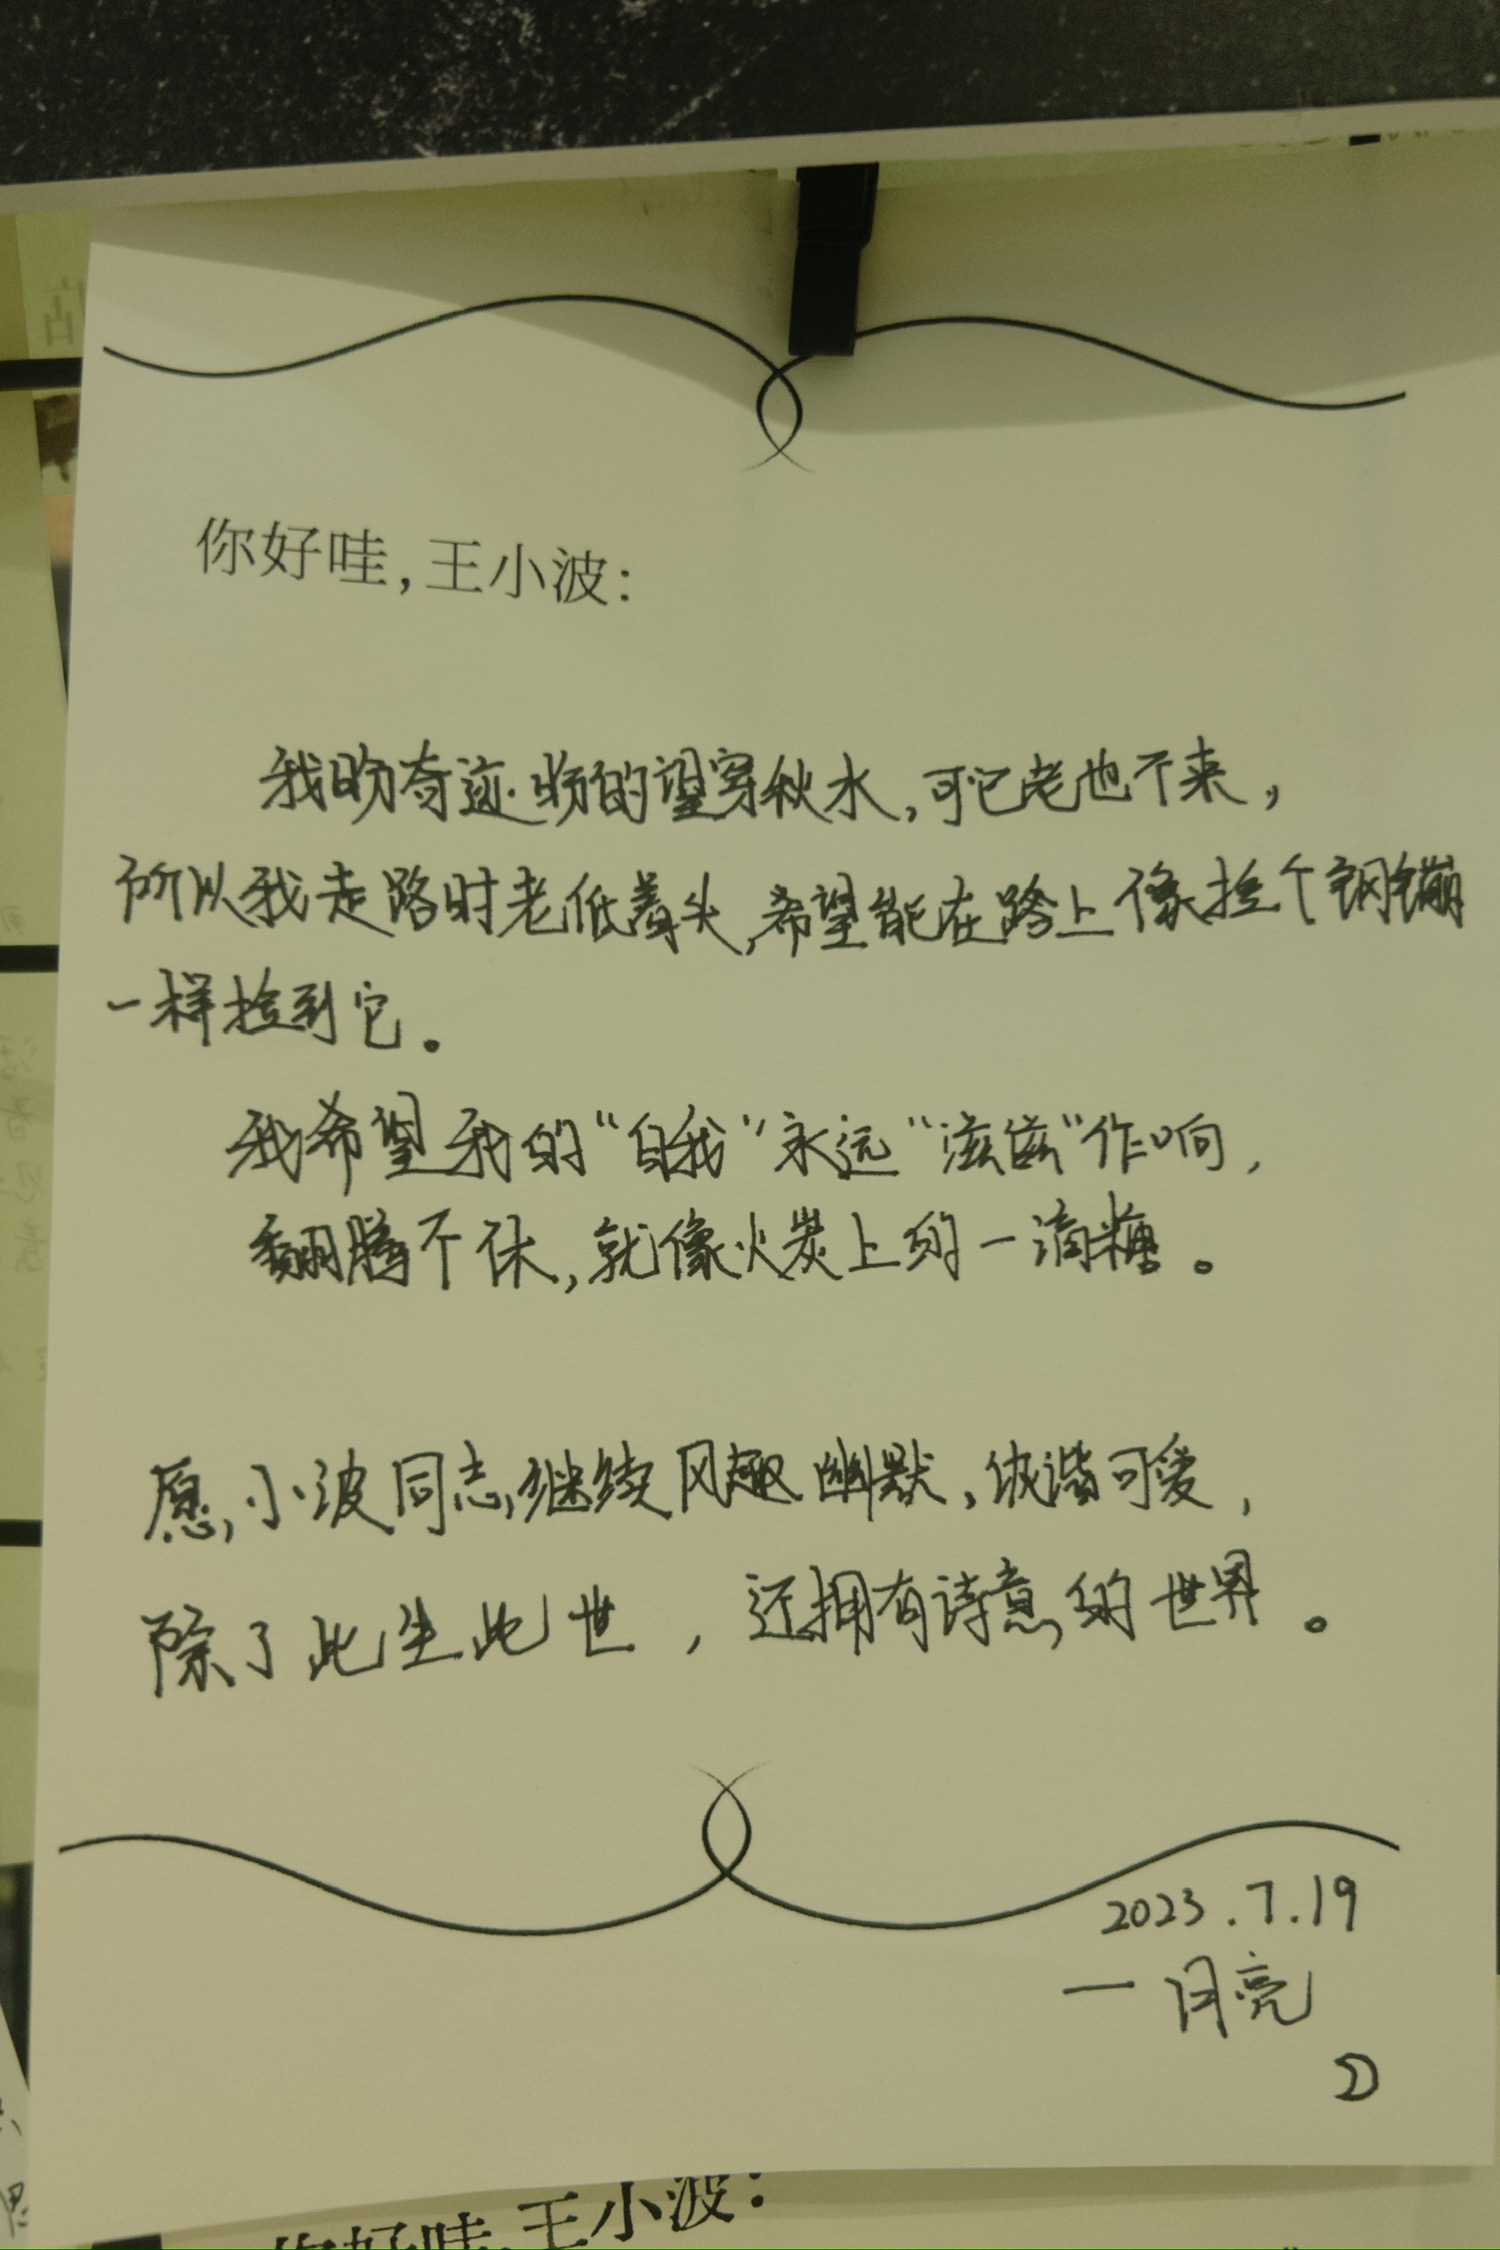 你好哇，王小波：
我盼奇迹盼的望穿秋水，可它老也不来，
所以我走路时老低着头，希望能在路上像捡个钢镚
一样捡到它。
我希望我的“自我”永远“滋滋”作响，
翻腾不休，就像火炭上的一滴糖。
愿，小波同志，继续风趣幽默，诙谐可爱，
除了此生此世，还拥有诗意的世界。
2023.7.19
一月亮
你好哇，王小波：